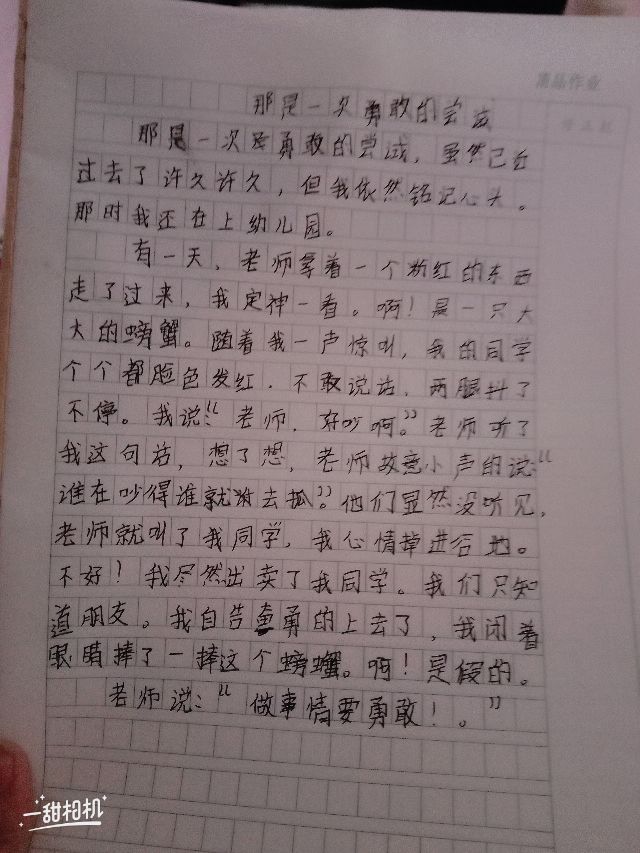 精品作业
那是一次勇敢的尝试
那是一次勇敢的尝试，虽然已在
过去了许久许久，但我依然铭记心头。
那时我还在上幼儿园。
有一天，老师拿着一个粉红的东西
走了过来，我定神一看。啊！是一只大
大的螃蟹。随着我一声惊叫，我的同学
个个都脸色发红．不敢说话，两腿抖了
不停。我说：“老师．好吵啊。”老师听了
我这句话，想了想，老师故意小声的说：“
谁在吵得谁就去抓”。他们显然没听见，
老师就叫了我同学，我心情掉进谷地。
不好！我尽然出卖了我同学。我们只知
道朋友。我自告奋勇的上去了，我闭着
眼睛捧了一捧这个螃蟹。啊！是假的。
老师说：“做事情要勇敢！。”
一甜相机